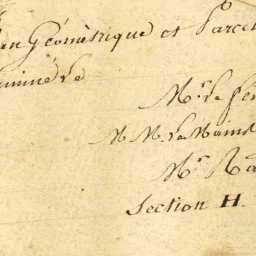 an Géométrique et Parcel
miné Le
Mr. Le
M M. Le
Mr
Section H.